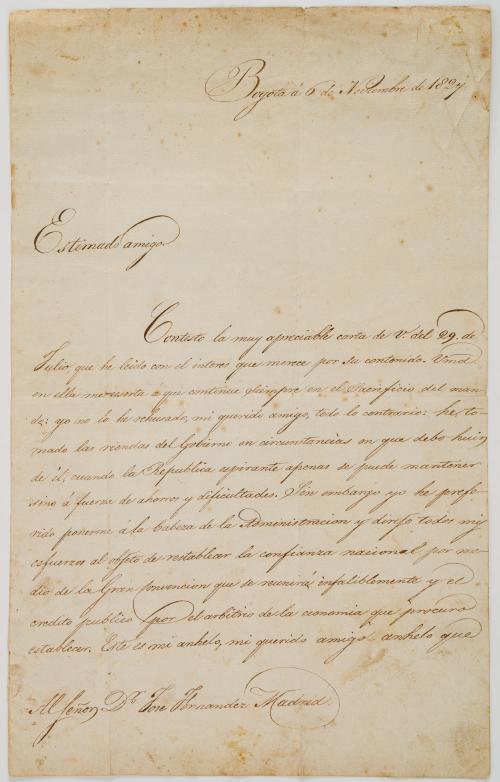 Bogotá á 6 de Noviembre de 1827
Estimado amigo
Contesto la muy apreciable carta de V. del 29 de
Julio que he leido con el interes que merece por su contenido. Vmd.
en ella me exorta á que continue siempre en el Sacrificio del man-
do: yo no lo he rehusado, mi querido amigo, todo lo contrario: he to-
mado las riendas del Gobierno en circunstancias en que debo huir
de él, cuando la Republica espirante apenas se puede mantener
sino á fuerza de ahorros y dificultades. Sin embargo yo he prefe-
rido ponerme á la Cabeza de la Administracion y dirijo todos mis
esfuerzos al objeto de restablecer la confianza nacional por me-
dio de la Gran Convencion que se reunirá infaliblemente y el
credito publico por el arbitrio de la economia que procuro
establecer. Este es mi anhelo, mi querido amigo anhelo que
Al Señor Dr. Jose Fernandez Madrid.